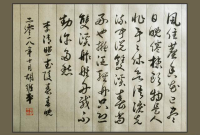 風住塵香花已盡
日晚倦梳頭物是人
非事事休欲語淚先
流聞說雙溪春尚好
也擬泛輕舟只恐
雙溪舴艋舟載不
動許多愁
李清照武陵春春晚
二零一八年十月胡